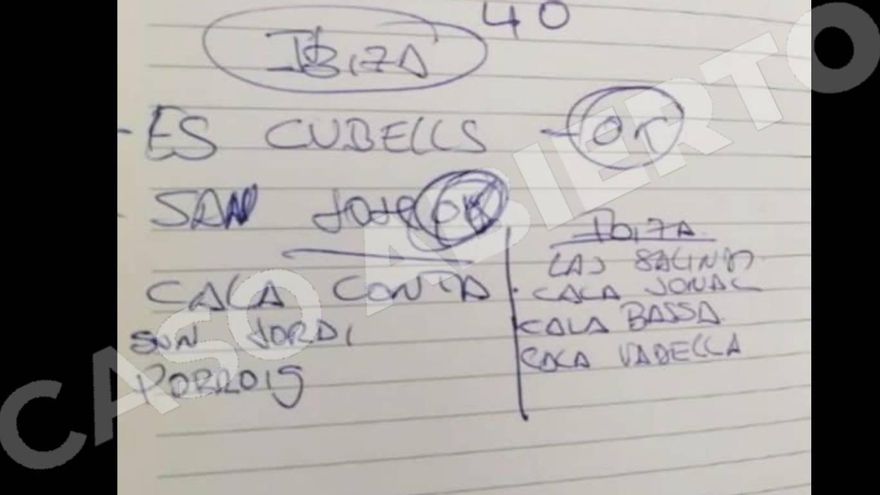 40
IBIZA
- ES CUBELLS - OK
- SAN JOSE OK
CALA CONTA
SAN JORDI
PORROIG
IBIZA
LAS SALINAS
CALA JONAL
CALA BASSA
CALA VADELLA
CASO ABIERTO